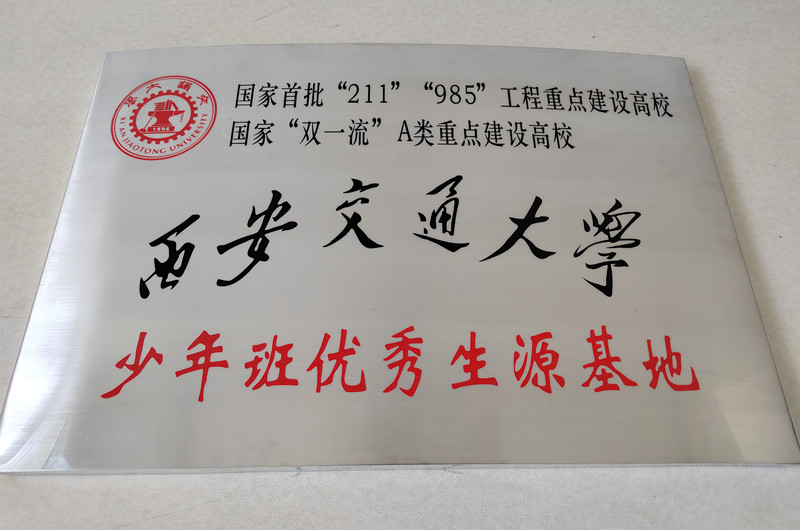 国家首批“211”“985”工程重点建设高校
国家“双一流”A类重点建设高校
西安交通大學
少年班优秀生源基地
XI'AN JIAOTONG UNIVERSITY
1896